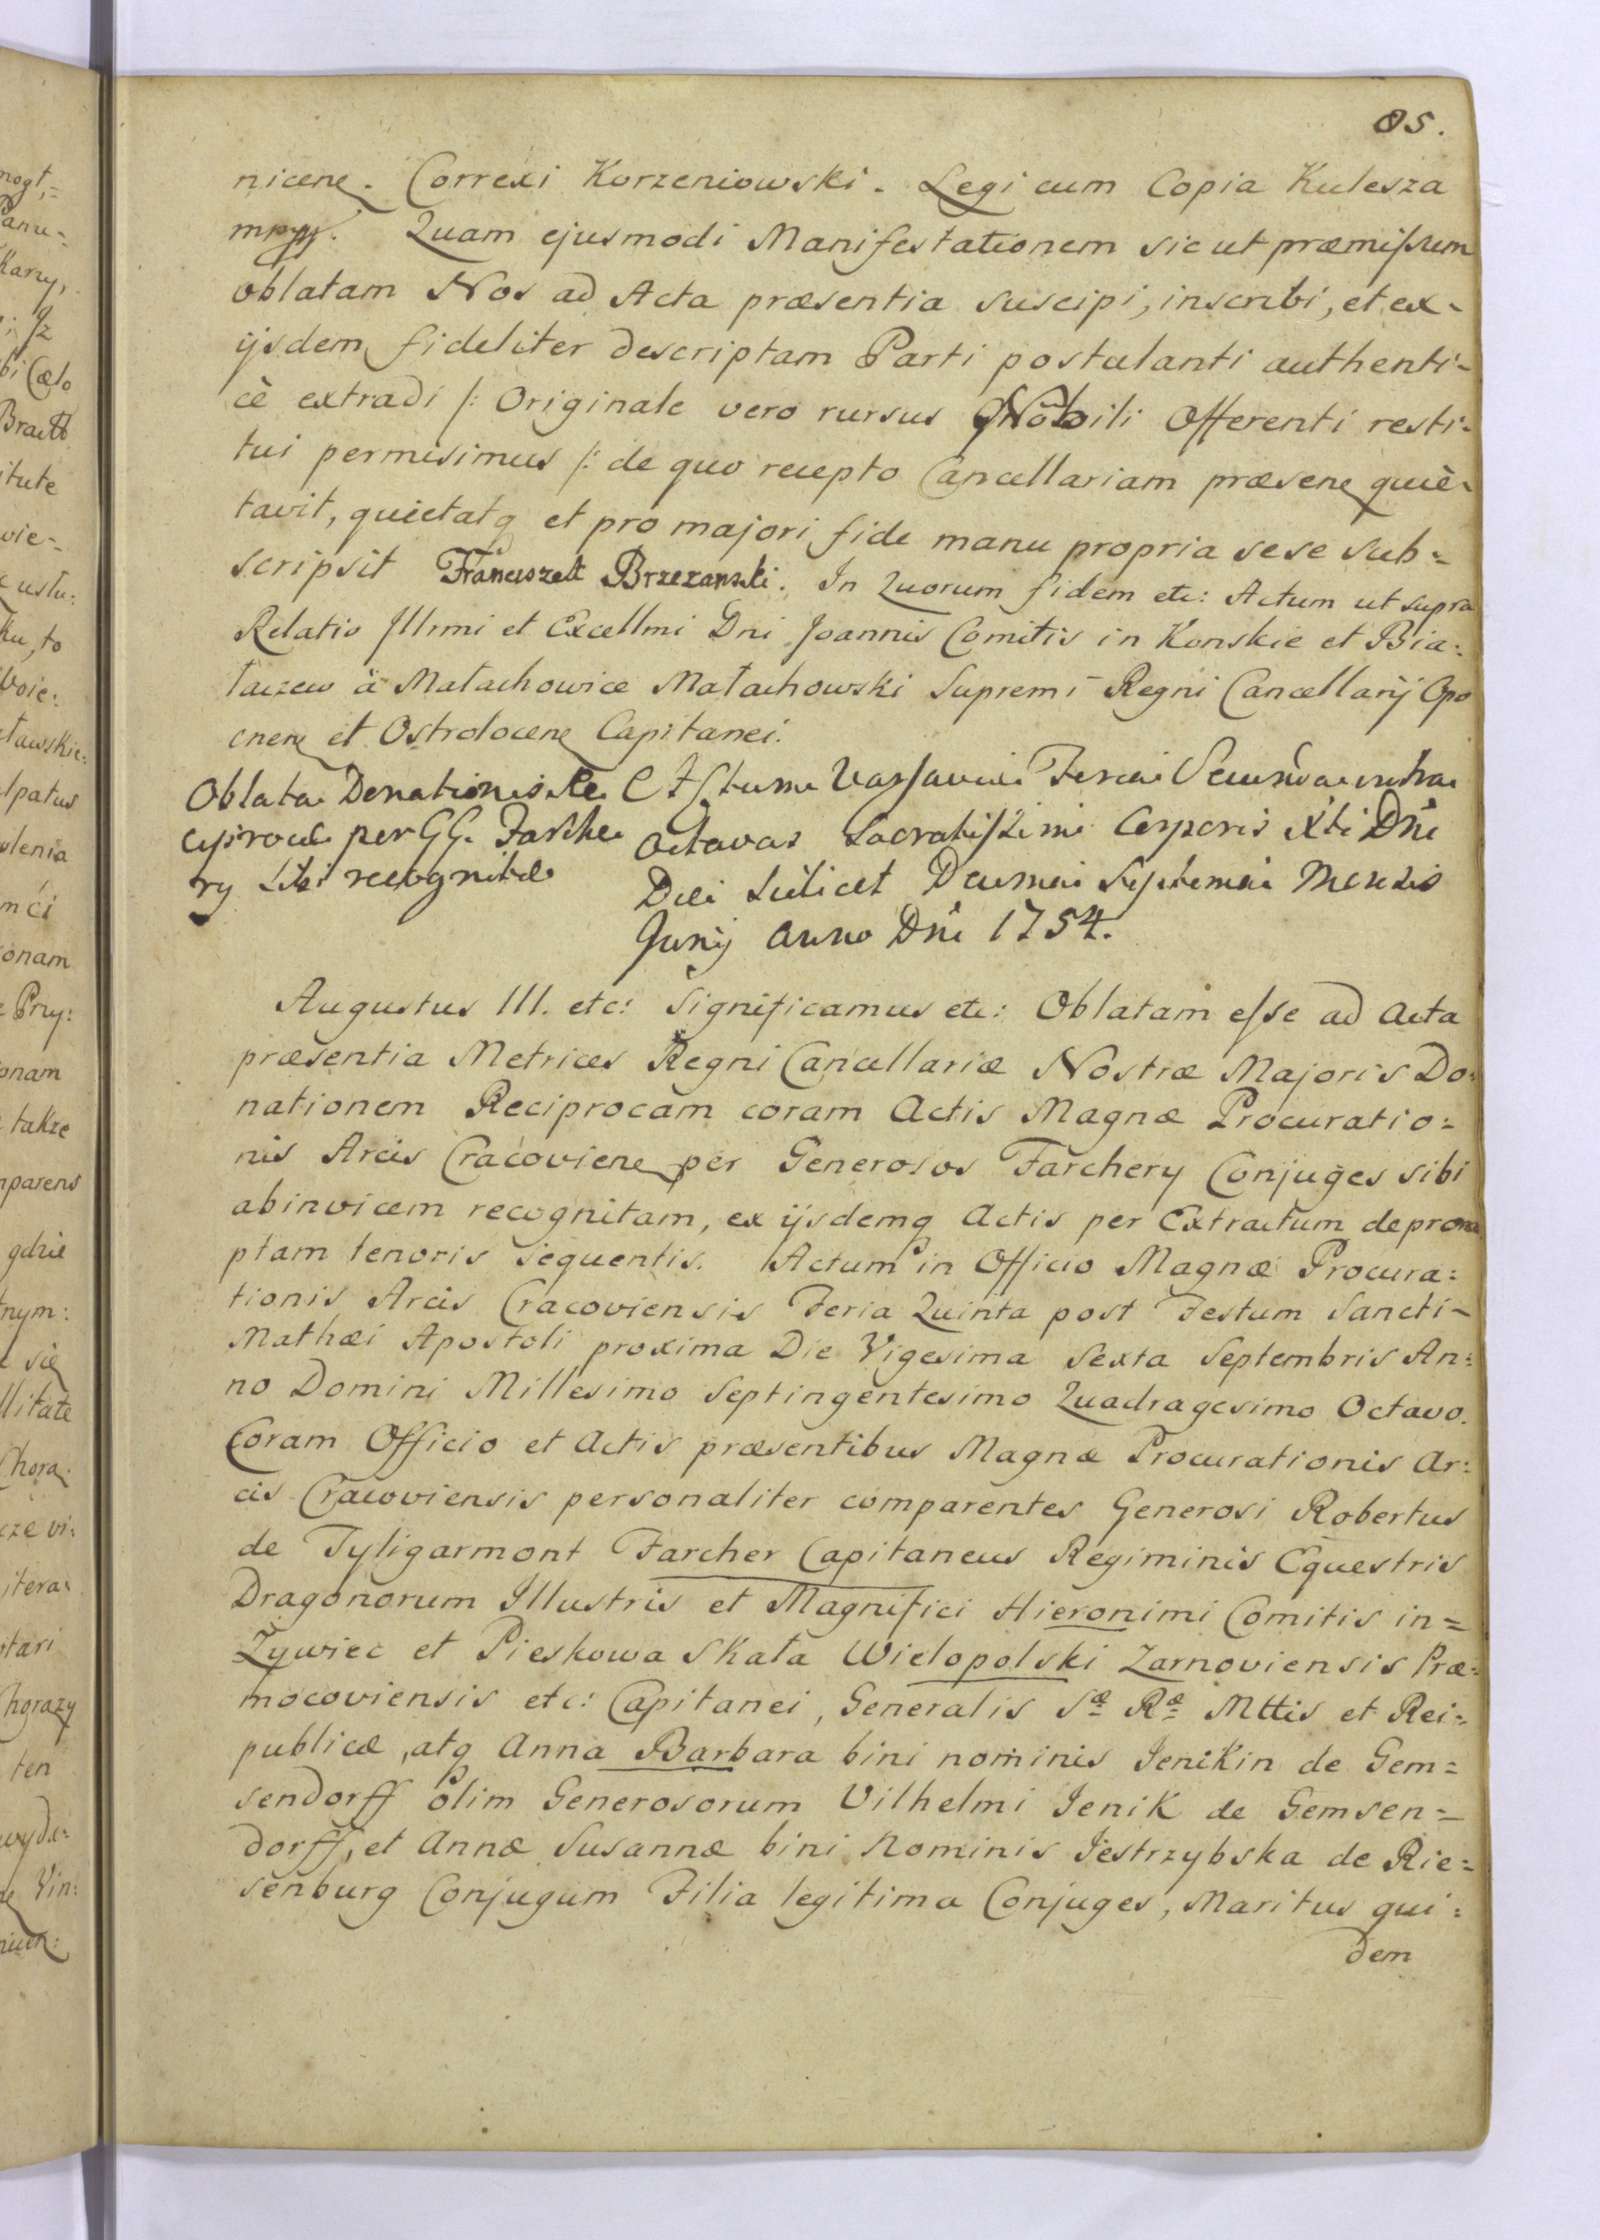 85.
nicen. Correxi Korzeniowski. Legi cum Copia Kulesza
mpp. Quam ejusmodi Manifestationem sic ut præmissum
oblatam Nos ad Acta præsentia suscipi, inscribi, et ex-
ijsdem fideliter descriptam Parti postulanti authenti-
cè extradi /: Originale vero rursus GNobili Offerenti resti-
tui permisimus /: de quo recepto Cancellariam præsen quiè-
tavit, quietatq et pro majori fide manu propria sese sub=
scripsit Franciszek Brzezanski. In Quorum fidem etc: Actum ut supra
Relatio Illrmi et Excellmi Dni Joannis Comitis in Konskie et Bia=
łaczew à Małachowice Małachowski Supremi Regni Cancellarij Opo
cnen et Ostrolocen Capitanei.
Oblata Donationis Re
ciprocæ per GG. Farche
ry sibi recognitæ
Actum Varsaviæ Feria Secunda intra
octavas Sacratissimi Corporis Xti Dni
Die scilicet Decima Septima Mensis
Junij Anno Dni 1754.
Augustus III. etc: Significamus etc: Oblatam esse ad Acta
præsentia Metrices Regni Cancellariæ Nostræ Majoris Do=
nationem Reciprocam coram Actis Magnæ Procuratio=
nis Arcis Cracovien per Generosos Farchery Conjuges sibi
abinvicem recognitam, ex ijsdemq Actis per Extractum deprom
ptam tenoris sequentis. Actum in Officio Magnæ Procura=
tionis Arcis Cracoviensis Feria Quinta post Festum Sancti-
Mathæi Apostoli proxima Die Vigesima Sexta Septembris An=
no Domini Millesimo Septingentesimo Quadragesimo Octavo.
Coram Officio et Actis præsentibus Magnæ Procurationis Ar=
cis Cracoviensis personaliter comparentes Generosi Robertus
de Tyligarmont Farcher Capitaneus Regiminis Equestris
Dragonorum Illustris et Magnifici Hieronimi Comitis in=
Zywiec et Pieskowa Skała Wielopolski Zarnoviensis Præ=
mocoviensis etc: Capitanei, Generalis Sæ Ræ Mttis et Rei=
publicæ, atq Anna Barbara bini nominis Jenikin de Gem=
sendorff olim Generosorum Vilhelmi Jenik de Gemsen=
dorff, et Annæ Susannæ bini Nominis Jestrzybska de Rie=
senburg Conjugum Filia legitima Conjuges, Maritus qui=
dem